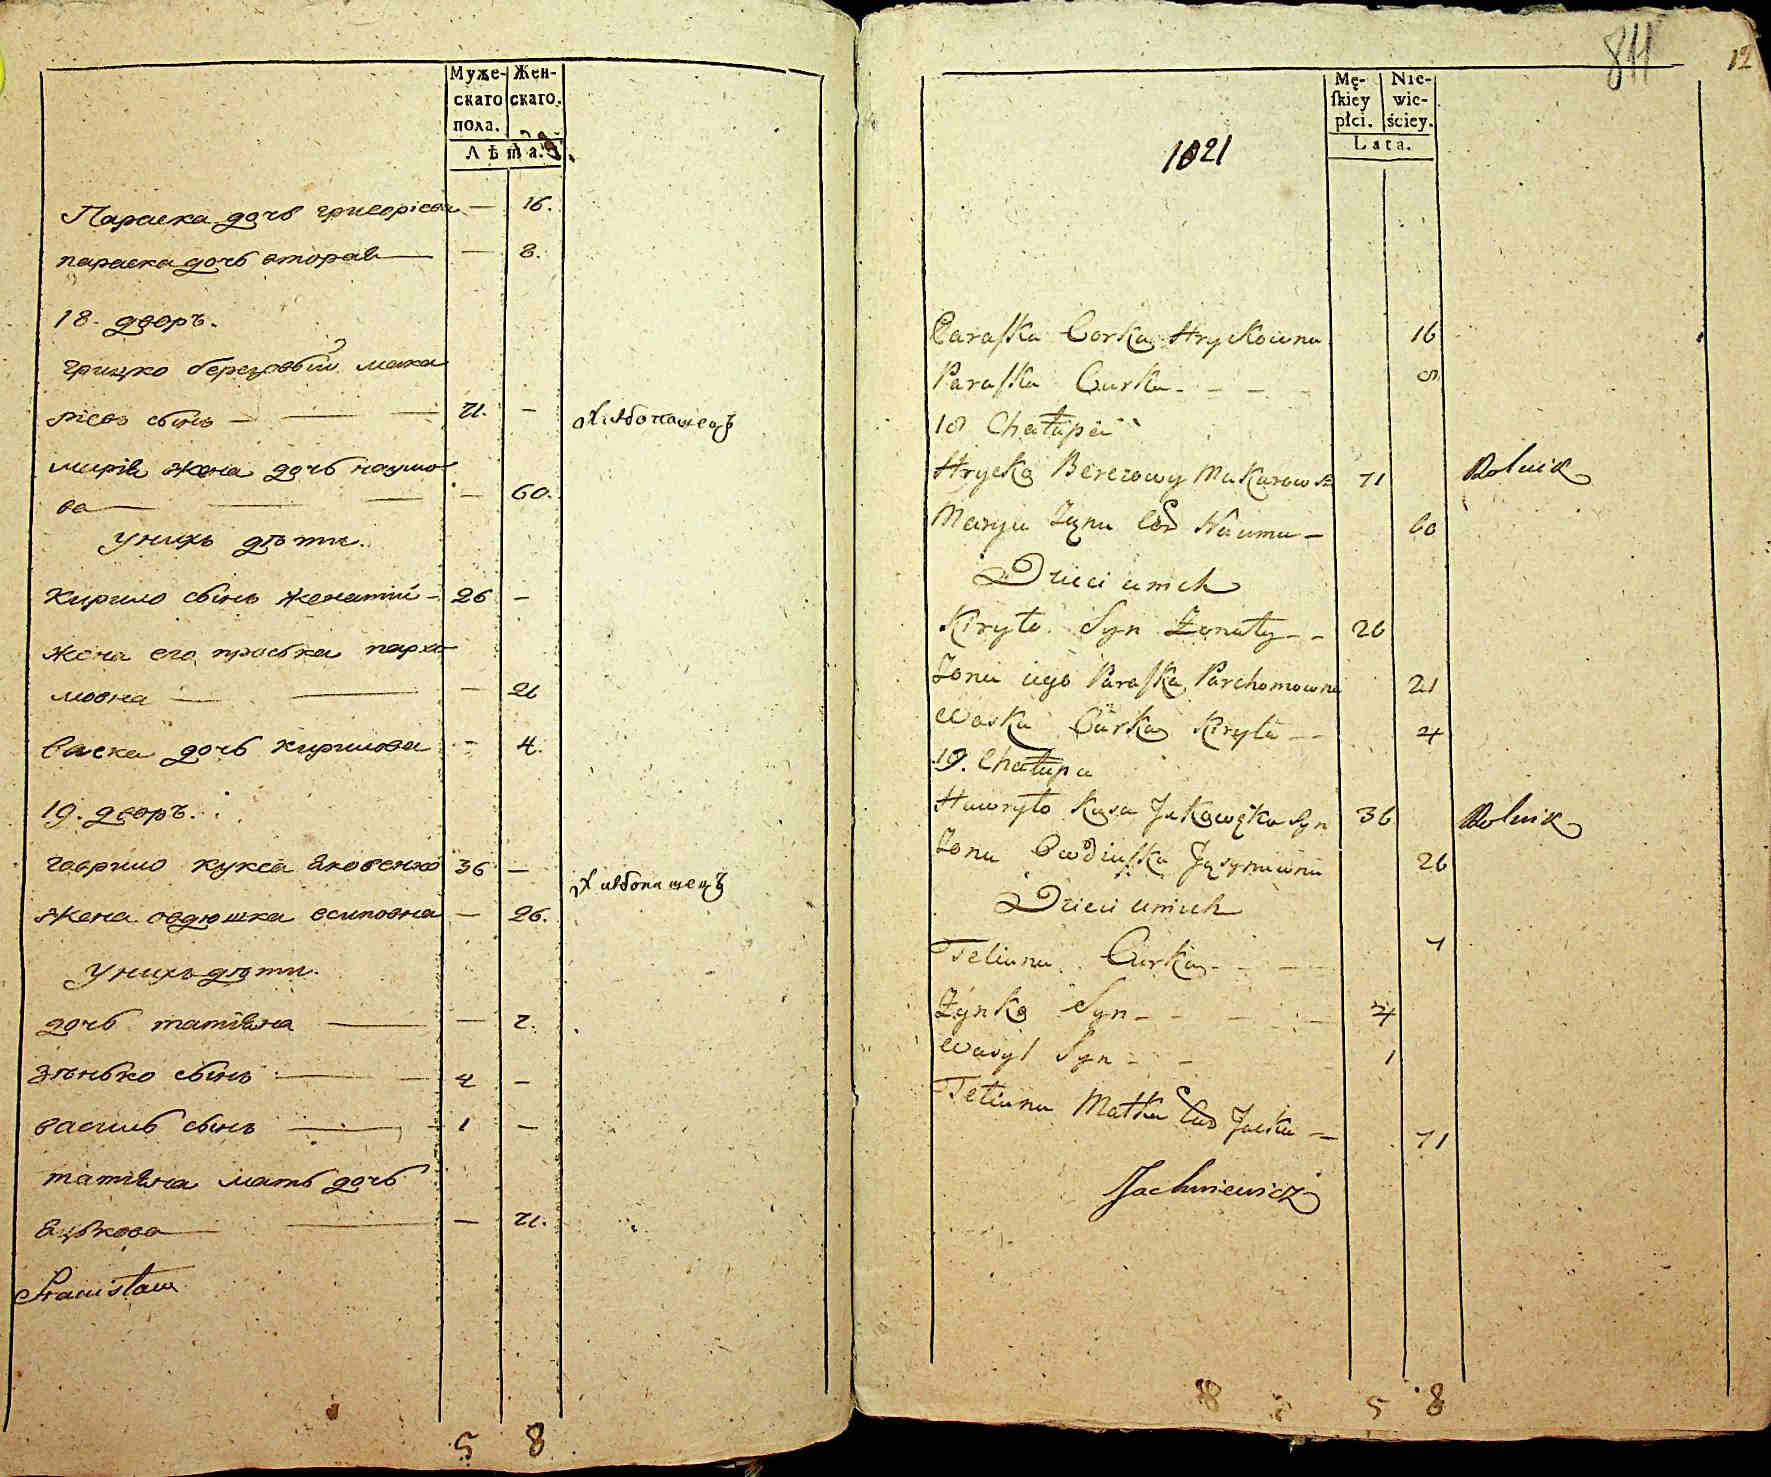 Муже- Жен-
скаго скаго.
пола.
Лѣта.
Параска дочь григорієва — 16.
параска дочь вторая — — 8.
18. дворъ.
грицко березовый мака
рієвъ сынъ — 71. — хлѣбопашецъ
марія жена дочь наумо
ва — — 60.
у нихъ дѣти.
кирило сынъ женатій — 26 —
жена его праська пархо
мовна — — 21
васка дочь кирилова — 4.
19. дворъ.
гаврило кукса яковенко 36 — хлѣбопашецъ
жена овдюшка есиповна — 26.
у нихъ дѣти.
дочь татіяна — — 7.
зѣнько сынъ — 4 —
василь сынъ — 1 —
татіяна мать дочь
яцкова — — 71.
Stanisław
5 8
811 12
Mę- Nie-
ſkiey wie-
płci. ściey.
Lata.
1021
Paraſka Corka Hryckowna 16
Paraſka Curka - - - 8
18 Chałupa
Hrycko Berezowy Makarow Sn 71 Rolnik
Marya Żona Cor Nauma - 60
Dzieci u nich
Kiryło Syn Żonaty - - 26
Żona iego Paraſka Parchomowna 21
Waska Curka Kiryła - - 4
19. Chałupa
Hawryło Kuxa Jakowęka Syn 36 Rolnik
Żona Owdiuſka Jesypowna 26
Dzieci u nich
Tetiana Curka - - - 7
Zynko Syn - - - 4
Wasyl Syn - - 1
Tetiana Matka Cor Jacka - 71
Jachniewicz
8 5 8